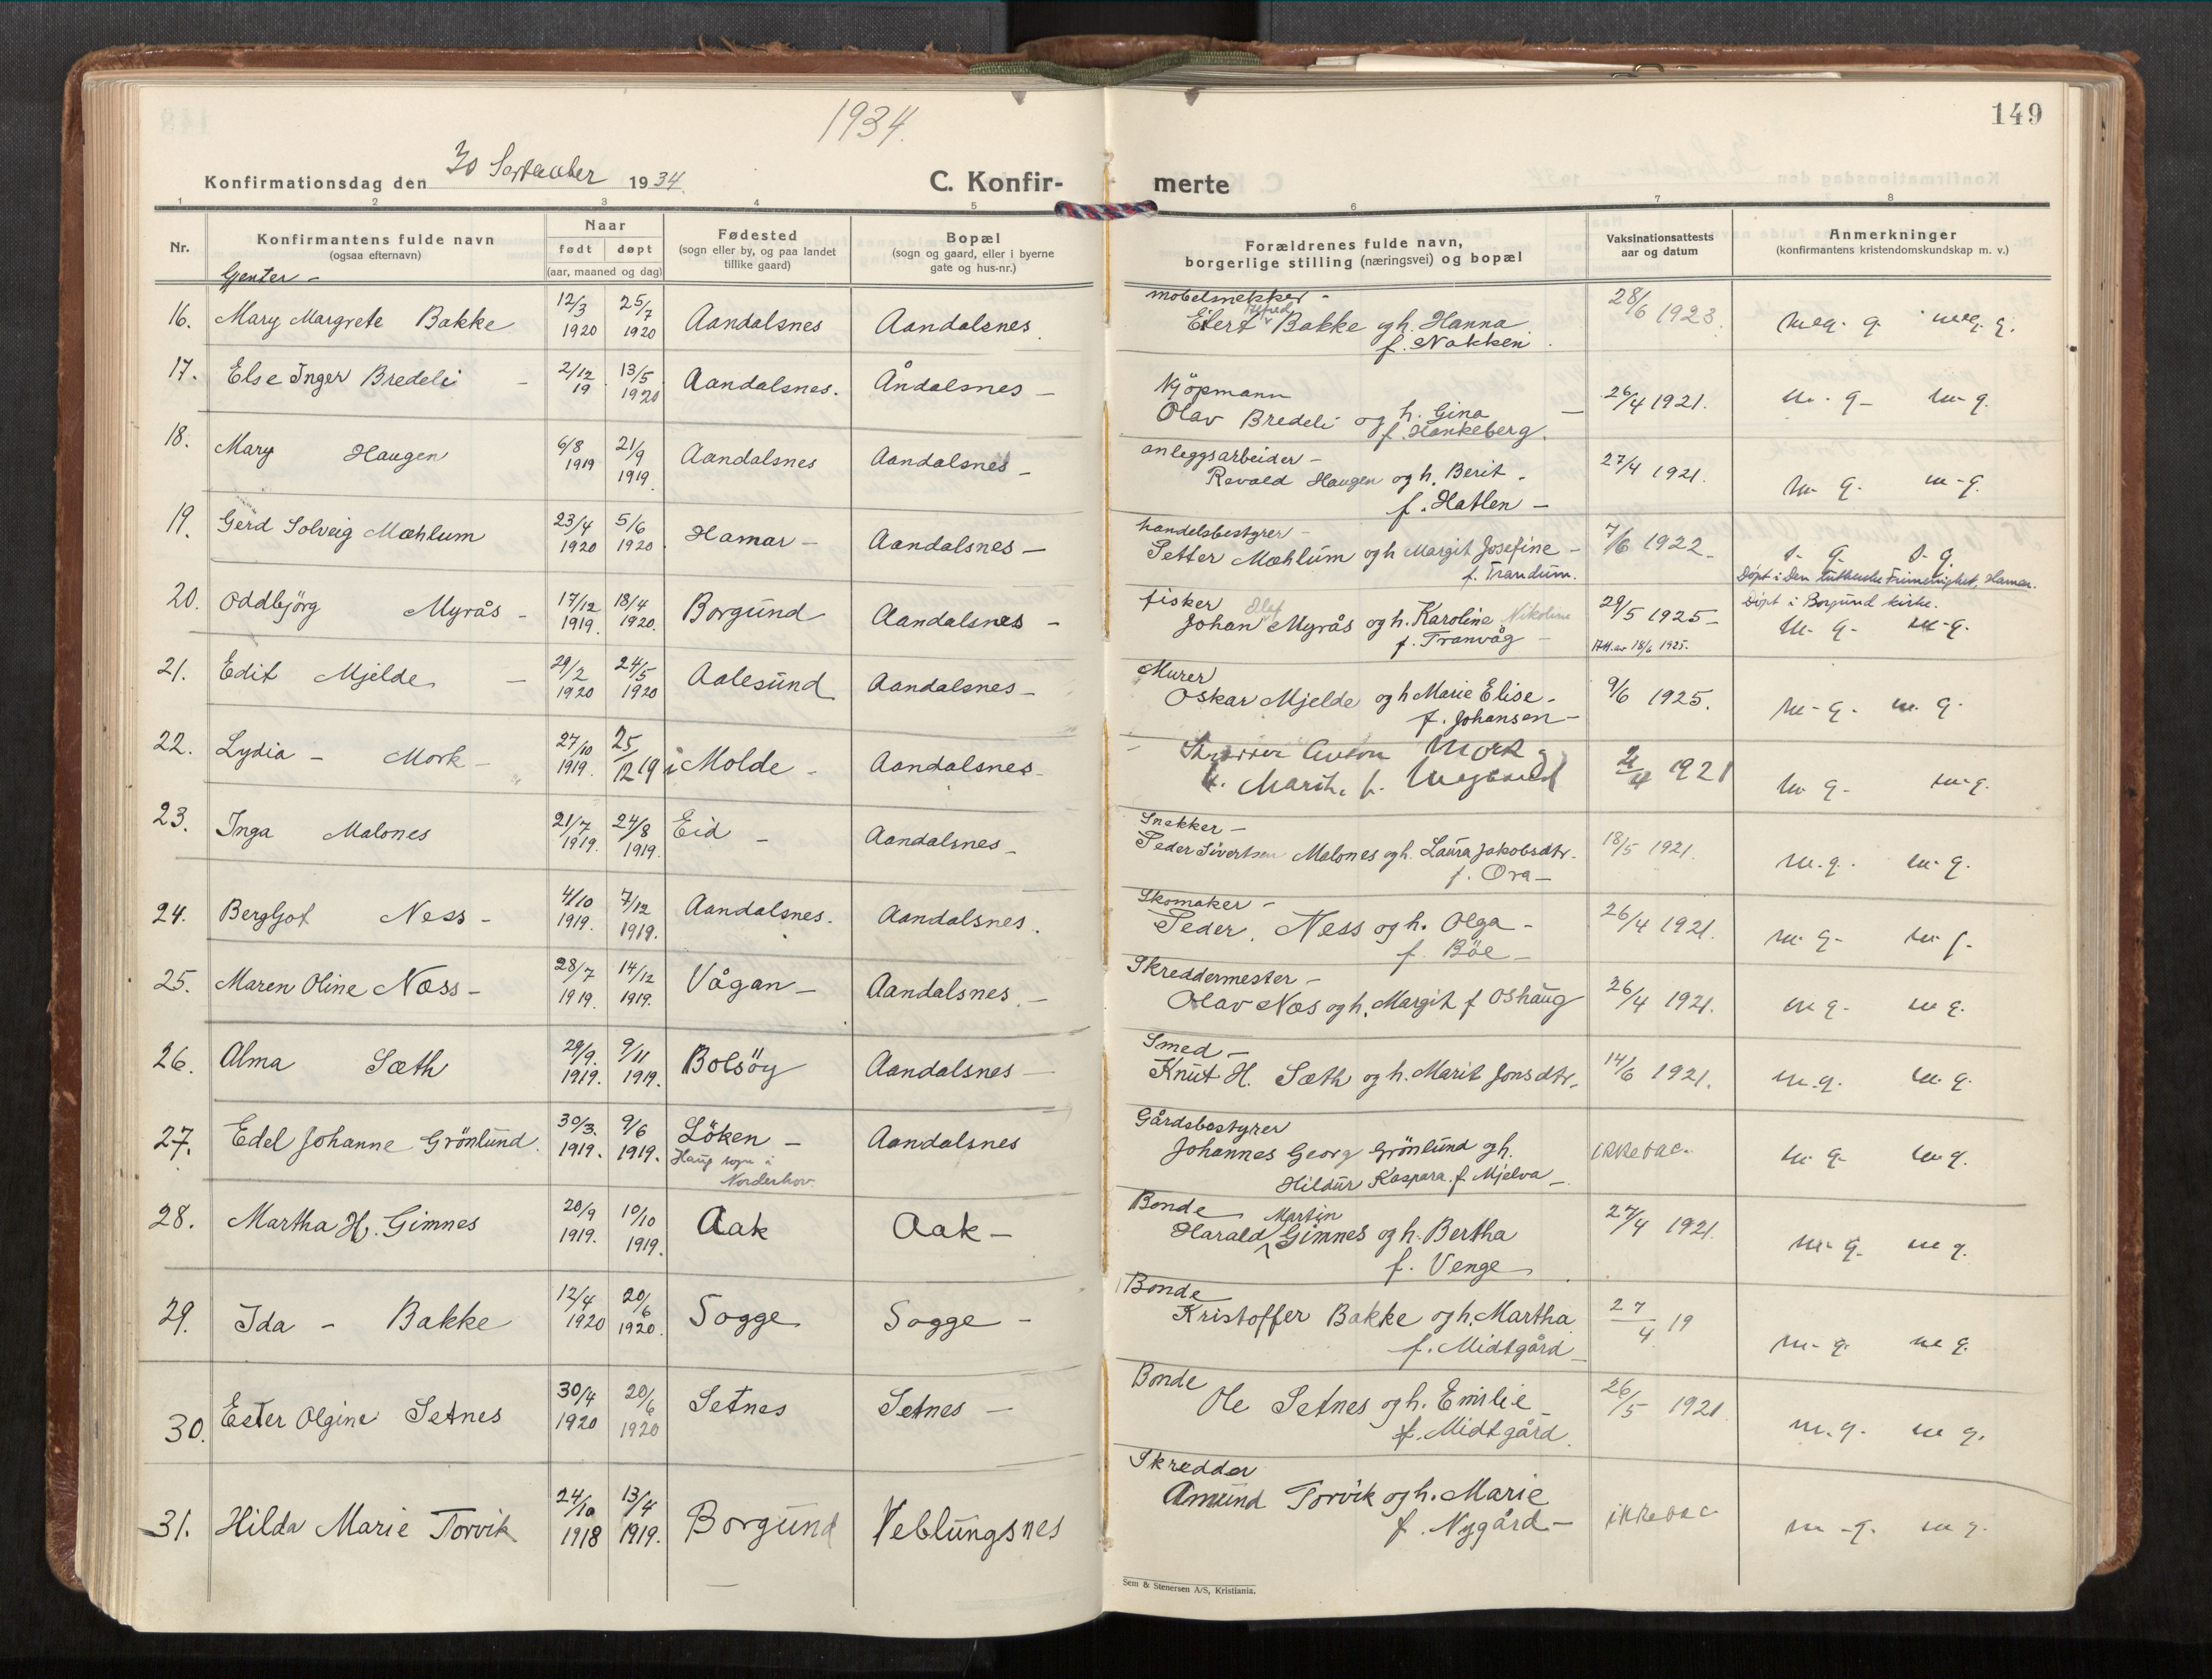 1934.
149
Konfirmationsdag den 30 September 1934.
C. Konfir-
merte
1 2 3 4 5 6 7 8
Nr.
Konfirmantens fulde navn
(ogsaa efternavn)
Naar
født døpt
(aar, maaned og dag)
Fødested
(sogn eller by, og paa landet
tillike gaard)
Bopæl
(sogn og gaard, eller i byerne
gate og hus-nr.)
Forældrenes fulde navn,
borgerlige stilling (næringsvei) og bopæl
Vaksinationsattests
aar og datum
Anmerkninger
(konfirmantens kristendomskundskap m. v.)
Genter -
16. Mary Margrete Bakke 12/3 1920 25/7 1920 Aandalsnes Aandalsnes.
møbelsnekker -
Eilert Alfred Bakke og h. Hanna
f. Nakken.
28/6 1923. meg. g. meg. g.
17. Else Inger Bredeli - 2/12 19 13/5 1920 Aandalsnes. Åndalsnes -
Kjöpmann
Olav Bredeli og h. Gina -
f. Hankeberg.
26/4 1921. m. g. - m. g.
18. Mary Haugen 6/8 1919 21/9 1919. Aandalsnes Aandalsnes -
anleggsarbeider -
Revald Haugen og h. Berit -
f. Hatlen -
27/4 1921. m. g. m. g.
19. Gerd Solveig Mæhlum 23/4 1920 5/6 1920. Hamar - Aandalsnes -
handelsbestyrer -
Petter Mæhlum og h Margit Josefine -
f. Trandum.
7/6 1922 - s. g. s. g.
Døpt i Den lutherske Frimenighet, Hamar.
20. Oddbjörg Myrås - 17/12 1919. 18/4 1920. Borgund Aandalsnes -
fisker
Johan Olaf Myrås og h. Karoline Nikoline
f. Tranvåg -
29/5 1925 -
Att. av 18/6 1925.
Døpt i Borgund kirke.
m. g. - m. g.
21. Edit Mjelde - 29/2 1920 24/5 1920 Aalesund Aandalsnes -
Murer
Oskar Mjelde og h Marie Elise -
f. Johansen -
9/6 1925. m. g. m. g.
22. Lydia - Mork - 27/10 1919. 25/12 19 i Molde - Aandalsnes -
Anton Mork og
h. Marit, f.
2/4 1921 m. g. - m. g.
23. Inga Malones 21/7 1919. 24/8 1919. Eid - Aandalsnes -
Snekker -
Peder Sivertsen Malones og h. Laura Jakobsdtr.
f. Ora -
18/5 1921. m. g. m. g.
24. Bergljot Ness - 4/10 1919. 7/12 1919. Aandalsnes. Aandalsnes.
Skomaker -
Peder Ness og h. Olga -
f. Böe -
26/4 1921. m. g. m. g.
25. Maren Oline Næss - 28/7 1919. 14/12 1919. Vågan - Aandalsnes. -
Skreddermester -
Olav Næs og h. Margit f Oshaug
26/4 1921. m. g. m. g.
26. Alma Sæth 29/9. 1919. 9/11 1919. Bolsöy Aandalsnes -
Smed -
Knut H. Sæth og h. Marit Jonsdtr.
14/6 1921. m. g. m. g.
27. Edel Johanne Grönlund. 30/3. 1919. 9/6 1919. Löken - Aandalsnes
Haug sogn i
Norderhov.
Gårdsbestyrer
Johannes Georg Grönlund og h.
Hildur Kaspara f. Mjelva -
ikke vac. m. g. m. g.
28. Martha H. Gimnes 20/9 1919. 10/10 1919. Aak Aak -
Bonde
Harald Martin Gimnes og h. Bertha
f. Venge
27/4 1921. m. g. m g.
29. Ida - Bakke 12/4 1920 20/6 1920. Sogge Sogge -
Bonde
Kristoffer Bakke og h. Martha
f. Midtgård -
27/4 19 m. g. m g.
30. Ester Olgine Setnes 30/4 1920 20/6 1920 Setnes Setnes -
Bonde
Ole Setnes og h. Emilie
f. Midtgård.
26/5 1921. m. g. m g.
31. Hilda Marie Torvik 24/10 1918 13/4 1919. Borgund Veblungsnes
Skredder
Amund Torvik og h. Marie
f. Nygård -
ikke vac m. g. m g.
Sem & Stenersen A/S, Kristiania.